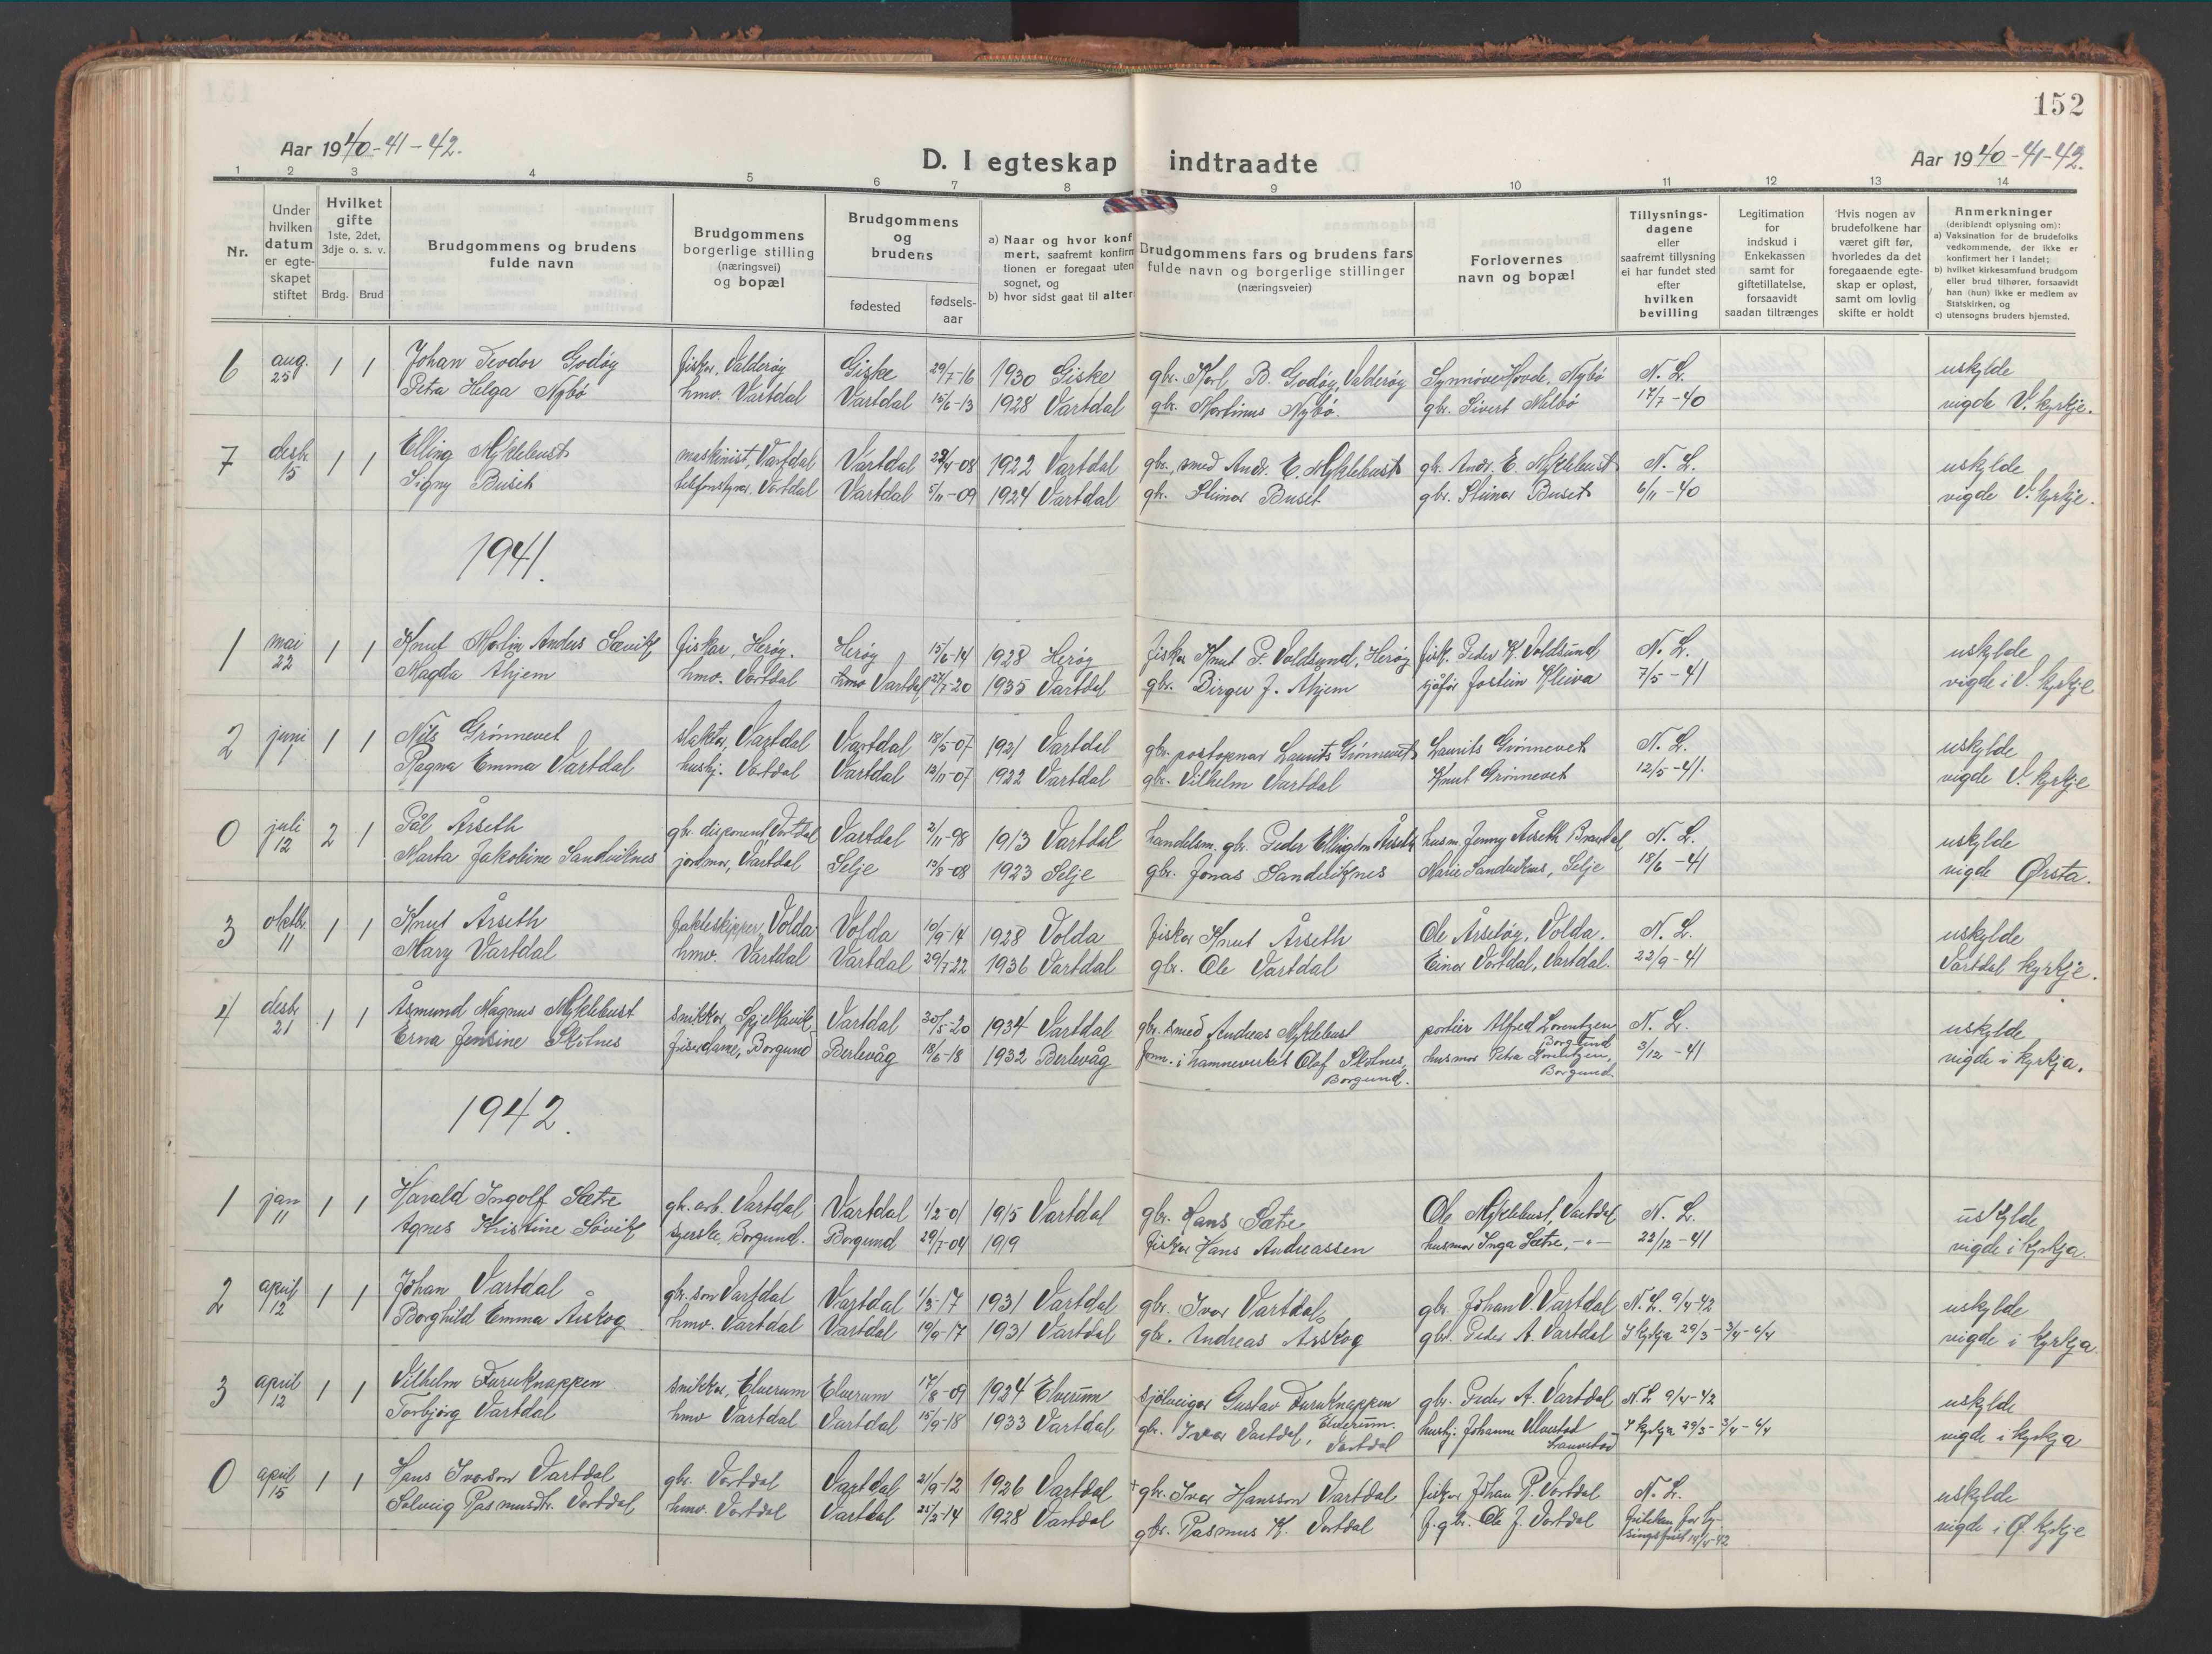 152
Aar 1940-41-42.
D. I egteskap indtraadte
Aar 1940-41-42.
1 2 3 4 5 6 7 8 9 10 11 12 13 14
Nr.
Under hvilken datum er egte-skapet stiftet
Hvilket gifte 1ste, 2det, 3dje o. s. v.
Brdg. Brud
Brudgommens og brudens fulde navn
Brudgommens borgerlige stilling (næringsvei) og bopæl
Brudgommens og brudens
fødested fødsels-aar
a) Naar og hvor konf mert, saafremt konfirm tionen er foregaat uten sognet, og
b) hvor sidst gaat til alter
Brudgommens fars og brudens fars fulde navn og borgerlige stillinger (næringsveier)
Forlovernes navn og bopæl
Tillysnings-dagene eller saafremt tillysning ei har fundet sted efter hvilken bevilling
Legitimation for indskud i Enkekassen samt for giftetillatelse, forsaavidt saadan tiltrænges
Hvis nogen av brudefolkene har været gift før, hvorledes da det foregaaende egte-skap er opløst, samt om lovlig skifte er holdt
Anmerkninger (deriblandt oplysning om):
a) Vaksination for de brudefolks vedkommende, der ikke er konfirmert her i landet;
b) hvilket kirkesamfund brudgom eller brud tilhører, forsaavidt han (hun) ikke er medlem av Statskirken, og
c) utensogns bruders hjemsted.
6 aug. 25 1 1 Johan Teodor Godøy fiskar, Valderøy Giske 29/7-16 1930 Giske gbr. Karl B. Godøy, Valderøy Synnøve Hovde, Nybø N. L. uskylde
Petra Helga Nybø hmv. Vartdal Vartdal 15/6-13 1928 Vartdal gbr. Martinus Nybø. gbr. Sivert Nybø 17/7-40 vigde V. kyrkje.
7 desbr. 15 1 1 Elling Myklebust maskinist, Vartdal Vartdal 1922 Vartdal gbr., smed Andr. E. Myklebust gbr. Andr. E. Myklebust N. L. uskylde
Signy Buset telefonstyrar, Vartdal Vartdal 5/11-09 1924 Vartdal gbr. Steinar Buset gbr. Steinar Buset 6/11-40 vigde V. kyrkje.
1941.
1 mai 22 1 1 Knut Martin Anders Sævik fiskar, Herøy. Herøy 15/6-14 1928 Herøy fiskar Knut P. Voldsund, Herøy fisk. Peder K. Voldsund N. L. uskylde
Magda Åhjem hmv. Vartdal Vartdal 27/7-20 1935 Vartdal gbr. Birger J. Åhjem sjåfør Jostein Kleiva 7/5-41 vigde i V. kyrkje
2 juni 1 1 1 Nils Grønnevet slaktar, Vartdal Vartdal 18/5-07 1921 Vartdal gbr. postopnar Laurits Grønnevet Laurits Grønnevet N. L. uskylde
Ragna Emma Vartdal hushj. Vartdal Vartdal 13/11-07 1922 Vartdal gbr. Vilhelm Vartdal Knut Grønnevet 12/5-41. vigde V. kyrkje
0 juli 12 2 1 Pål Årseth gbr. disponent, Vartdal Vartdal 2/11-98 1913 Vartdal handelsm. gbr. Peder Ellingson Årseth husm. Jenny Årseth N. L. uskylde
Marta Jakobine Sandviknes jordmor, Vartdal Selje 13/8-08 1923 Selje gbr. Jonas Sandviknes Marie Sandviknes, Selje 18/6-41 vigde Ørsta.
3 oktbr. 11 1 1 Knut Årseth fakteskipper, Volda Volda 10/9-14 1928 Volda fiskar Knut Årseth Ole Årsetøy, Volda. N. L. uskylde
Mary Vartdal hmv. Vartdal Vartdal 29/7-22 1936 Vartdal gbr. Ole Vartdal Einar Vartdal, Vartdal. 22/9-41 Vartdal kyrkje.
4 desbr. 21 1 1 Åsmund Magnus Myklebust snikkar, Spjelkavik Vartdal 30/5-20 1934 Vartdal gbr. smed Andreas Myklebust portier Alfred Lorentzen, Borgund N. L. uskylde
Erna Jensine Skotnes Borgund Berlevåg 18/6-18 1932 Berlevåg form. i hamneverket Olaf Skotnes, Borgund. husmor Petra Lorentzen, Borgund. 3/12-41 vigde i kyrkja.
1942.
1 jan 11 1 1 Harald Ingolf Sætre gbr. arb. Vartdal Vartdal 1/2-01 1915 Vartdal gbr. Hans Sætre Ole Myklebust, Vartdal N. L. uskylde
Agnes Kristine Søvik syerske, Borgund. Borgund 29/7-04 1919 fiskar Hans Andreassen husmor Inga Sætre, -"- 22/12-41 vigde i kyrkja.
2 april 12 1 1 Johan Vartdal gbr. son Vartdal Vartdal 1/3-17 1931 Vartdal gbr. Ivar Vartdal gbr. Johan V. Vartdal N. L. 9/4-42 uskylde
Borghild Emma Årskog hmv. Vartdal Vartdal 19/9-17 1931 Vartdal gbr. Andreas Årskog gbr. Peder A. Vartdal I kyrkja 29/3-3/4-6/4 vigde i kyrkja.
3 april 12 1 1 Vilhelm Furuknappen snikkar, Elverum Elverum 17/8-09 1924 Elverum sjølveigar Gustav Furuknappen Elverum. gbr. Peder A. Vartdal N. L. 9/4-42 uskylde
Torbjørg Vartdal hmv Vartdal Vartdal 15/9-18 1933 Vartdal gbr. Ivar Vartdal, Vartdal hushj. Johanne I kyrkja 29/3-3/4-6/4 vigde i kyrkja
0 april 15 1 1 Hans Ivarson Vartdal gbr. Vartdal Vartdal 21/9-12 1926 Vartdal + gbr. Ivar Hansson Vartdal fiskar Johan R. Vartdal N. L. uskylde
Solveig Rasmusdtr. Vartdal hmv. Vartdal Vartdal 25/3-14 1928 Vartdal gbr. Rasmus K. Vartdal f. gbr. Ole J. Vartdal friteken for lysingsfrist 14/4-42 vigde i Ø. kyrkje